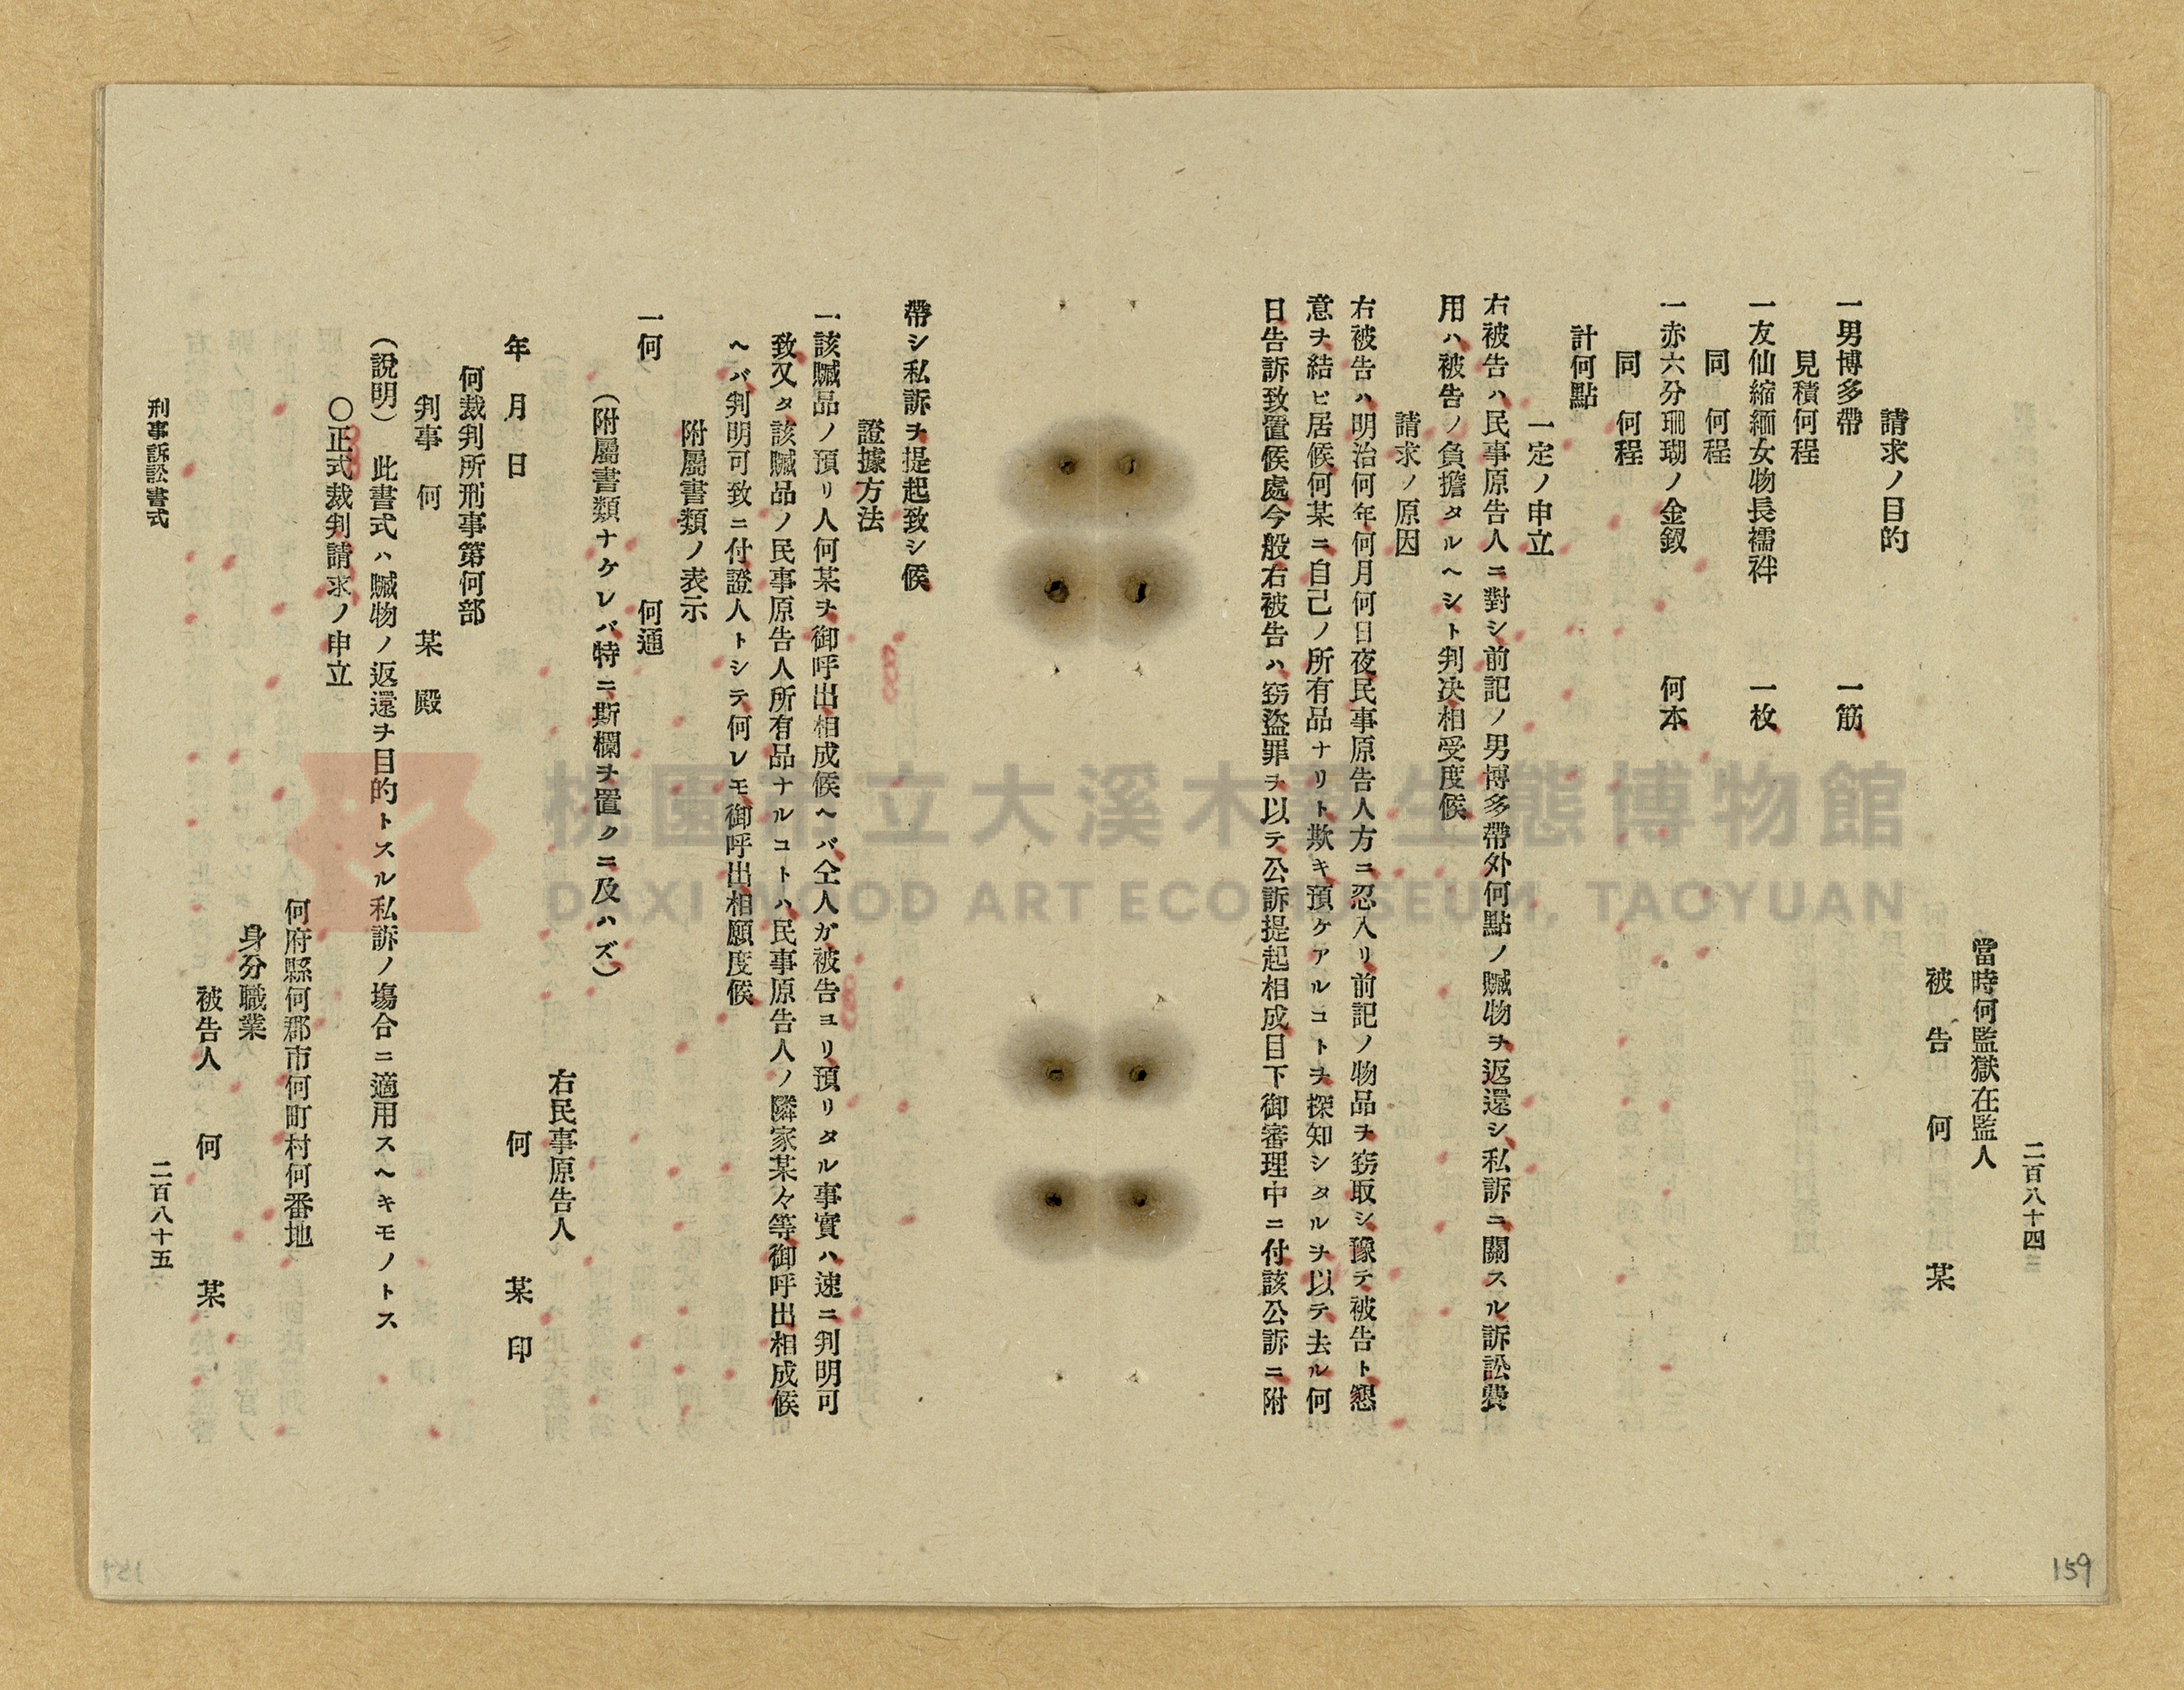 二百八十四
當時何監獄在監人
被告 何 某
請求ノ目的
一男博多帶 一筋
見積何程
一友仙縮緬女物長襦袢 一枚
同 何程
一赤六分珊瑚ノ金釵 何本
同 何程
計何點
一定ノ申立
右被告ハ民事原告人ニ對シ前記ノ男博多帶外何點ノ贓物ヲ返還シ私訴ニ關スル訴訟費
用ハ被告ノ負擔タルヘシト判决相受度候
請求ノ原因
右被告ハ明治何年何月何日夜民事原告人方ニ忍入リ前記ノ物品ヲ窃取シ豫テ被告ト懇
意ヲ結ヒ居候何某ニ自己ノ所有品ナリト欺キ預ケアルコトヲ探知シタルヲ以テ去ル何
日告訴致置候處今般右被告ハ窃盜罪ヲ以テ公訴提起相成目下御審理中ニ付該公訴ニ附
帶シ私訴ヲ提起致シ候
證據方法
一該贓品ノ預リ人何某ヲ御呼出相成候ヘバ仝人ガ被告ヨリ預リタル事實ハ速ニ判明可
致又タ該贓品ノ民事原告人所有品ナルコトハ民事原告人ノ隣家某々等御呼出相成候
ヘバ判明可致ニ付證人トシテ何レモ御呼出相願度候
附屬書類ノ表示
一何 何通
(附屬書類ナケレバ特ニ斯欄ヲ置クニ及ハズ)
右民事原告人
年 月 日 何 某 印
何裁判所刑事第何部
判事 何 某 殿
(說明) 此書式ハ贓物ノ返還ヲ目的トスル私訴ノ塲合ニ適用スヘキモノトス
〇正式裁判請求ノ申立
何府縣何郡市何町村何番地
身分職業
被告人 何 某
刑事訴訟書式 二百八十五
159
桃園市立大溪木藝生態博物館
DAXI WOOD ART ECOMUSEUM, TAOYUAN